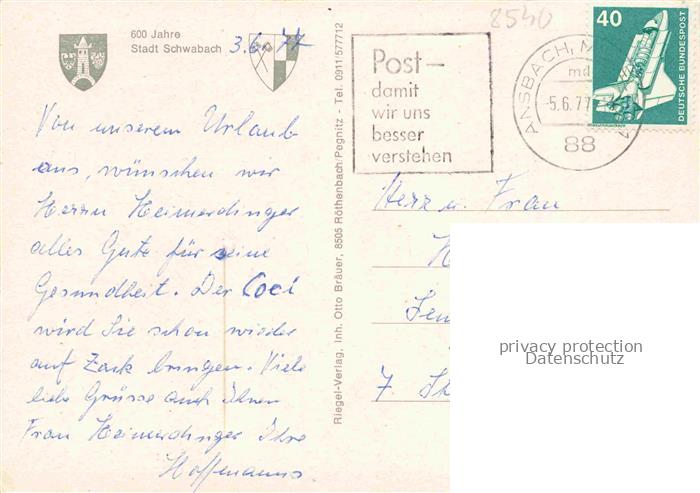 600 Jahre
Stadt Schwabach
3.6.77
8540
Von unserem Urlaub
aus, wünschen wir
Herrn Heimerdinger
alles Gute für seine
Gesundheit. Der Coci
wird Sie schon wieder
auf Zack bringen. Viele
liebe Grüsse auch Ihrer
Frau Heimerdinger Ihre
Hoffmanns.
Riegel-Verlag, Inh. Otto Bräuer, 8505 Röthenbach/Pegnitz - Tel. 0911/577712
Post-
damit
wir uns
besser
verstehen
ANSBACH, M
md
-5.6.77
88
40
DEUTSCHE BUNDESPOST
Herr u. Frau
7
privacy protection
Datenschutz